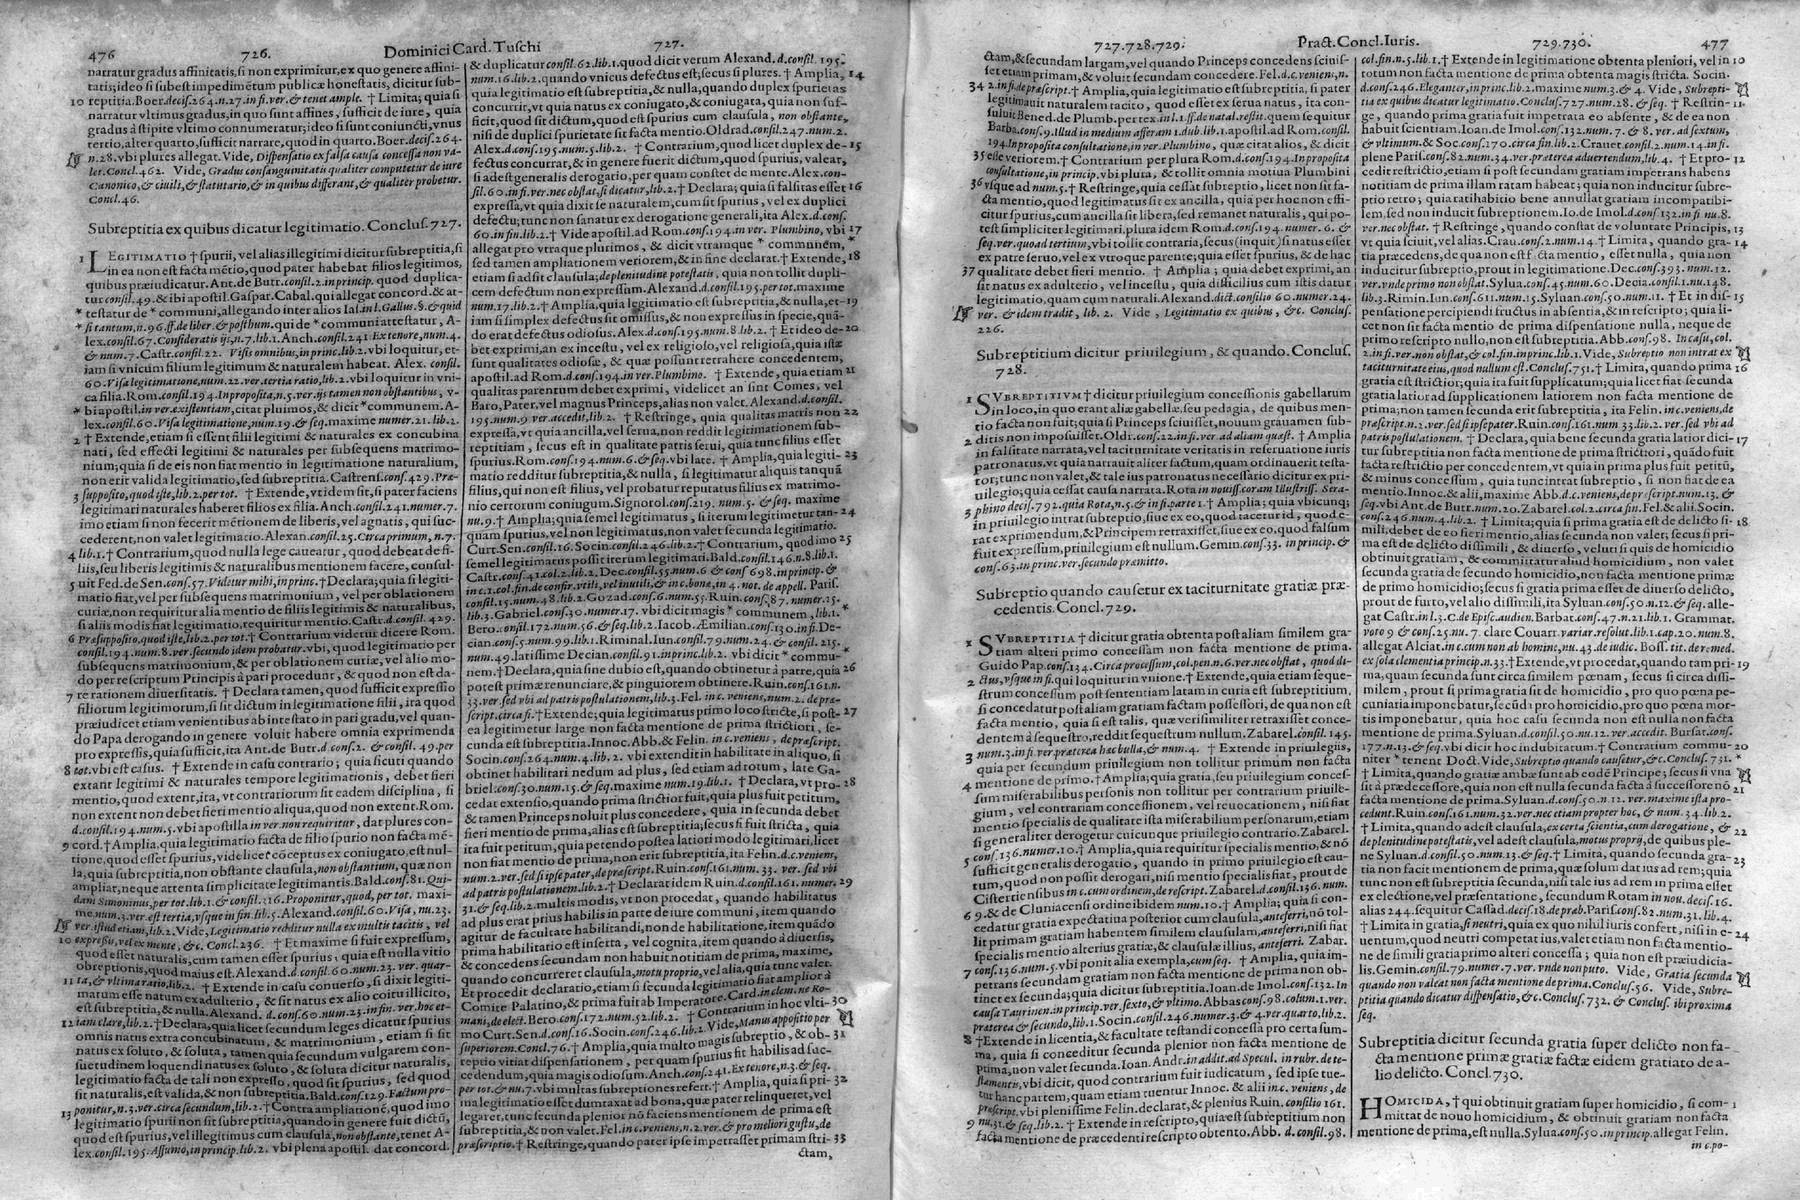 476 726. Dominici Card. Tuschi 727.
narratur gradus affinitatis, si non exprimitur, ex quo genere affini-
tatis; ideo si subest impedimentum publicæ honestatis, dicitur sub-
10 reptitia. Boer. decis. 264. n. 27. in fi. ver. & tenet ample. † Limita; quia si
narratur vltimus gradus, in quo sunt affines, sufficit de iure, quia
gradus à stipite vltimo connumeratur; ideo si sunt coniuncti, vnus
tertio, alter quarto, sufficit narrare, quod in quarto. Boer. decis. 264.
n. 28. vbi plures allegat. Vide, Dispensatio ex falsa causa concessa non va-
let. Concl. 462. Vide, Gradus consanguinitatis qualiter computetur de iure
Canonico, & ciuili, & statutario, & in quibus differant, & qualiter probetur.
Concl. 46.
Subreptitia ex quibus dicatur legitimatio. Conclus. 727.
1 LEGITIMATIO † spurij, vel alias illegitimi dicitur subreptitia, si
in ea non est facta mētio, quod pater habebat filios legitimos,
quibus præiudicatur. Ant. de Butr. consil. 2. in princip. quod duplica-
tur consil. 49. & ibi apostil. Gaspar. Cabal. qui allegat concord. & at-
* testatur de * communi, allegando inter alios Ias. in l. Gallus. §. & quid
* si tantum, n. 96. ff. de liber. & posthum. qui de * communi attestatur, A-
lex. consil. 67. Consideratis ijs, n. 7. lib. 1. Anch. consil. 241 Ex tenore, num. 4.
& num. 7. Castr. consil. 22. Visis omnibus, in princ. lib. 2. vbi loquitur, et-
iam si vnicum filium legitimum & naturalem habeat. Alex. consil.
60. Visa legitimatione, num. 22. ver. tertia ratio, lib. 2. vbi loquitur in vni-
ca filia. Rom. consil. 194. In proposita, n. 5. ver. ijs tamen non obstantibus, v-
* bi apostil. in ver. existentiam, citat plurimos, & dicit * communem. A-
lex. consil. 60. Visa legitimatione, num. 19. & seq. maxime numer. 21. lib. 2.
2 † Extende, etiam si essent filii legitimi & naturales ex concubina
nati, sed effecti legitimi & naturales per subsequens matrimo-
nium; quia si de eis non fiat mentio in legitimatione naturalium,
non erit valida legitimatio, sed subreptitia. Castrens. cons. 429. Præ-
3 supposito, quod iste, lib. 2. per tot. † Extende, vt idem sit, si pater faciens
legitimari naturales haberet filios ex filia. Anch. cons. 241. numer. 7.
imo etiam si non fecerit mētionem de liberis, vel agnatis, qui suc-
cederent, non valet legitimatio. Alexan. cons. 25. Circa primum, n. 7.
4 lib. 1. † Contrarium, quod nulla lege caueatur, quod debeat de fi-
liis, seu liberis legitimis & naturalibus mentionem facere, consul-
5 uit Fed. de Sen. cons. 57. Videtur mihi, in princ. † Declara; quia si legiti-
matio fiat, vel per subsequens matrimonium, vel per oblationem
curiæ, non requiritur alia mentio de filiis legitimis & naturalibus,
si aliis modis fiat legitimatio, requiritur mentio. Castr. d. consil. 429.
6 Præsupposito, quod iste, lib. 2. per tot. † Contrarium videtur dicere Rom.
consil. 194. num. 8. ver. secundo idem probatur. vbi, quod legitimatio per
subsequens matrimonium, & per oblationem curiæ, vel alio mo-
do per rescriptum Principis à pari procedunt, & quod non est da-
7 re rationem diuersitatis. † Declara tamen, quod sufficit expressio
filiorum legitimorum, si sit dictum in legitimatione filii, ita quod
præiudicet etiam venientibus ab intestato in pari gradu, vel quan-
do Papa derogando in genere voluit habere omnia exprimenda
pro expressis, quia sufficit, ita Ant. de Butr. d. cons. 2. & consil. 49. per
8 tot. vbi est casus. † Extende in casu contrario; quia sicuti quando
extant legitimi & naturales tempore legitimationis, debet fieri
mentio, quod extent, ita, vt contrariorum sit eadem disciplina, si
non extent non debet fieri mentio aliqua, quod non extent. Rom.
d. consil. 194. num. 5. vbi apostilla in ver. non requiritur, dat plures con-
9 cord. † Amplia, quia legitimatio facta de filio spurio non facta mē-
tione, quod esset spurius, videlicet cōceptus ex coniugato, est nul-
la, quia subreptitia, non obstante clausula, non obstantium, quæ non
ampliat, neque attenta simplicitate legitimantis. Bald. cons. 81. Qui-
dam Simoninus, per tot. lib. 1. & consil. 316. Proponitur, quod, per tot. maxi-
me num. 3. ver. est tertia, vsque in fin. lib. 5. Alexand. consil. 60. Visa, nu. 23.
ver. istud etiam, lib. 2. Vide, Legitimatio redditur nulla ex multis tacitis, vel
10 expressis, vel ex mente, &c. Concl. 236. † Et maxime si fuit expressum,
quod esset naturalis, cum tamen esset spurius; quia est nulla vitio
obreptionis, quod maius est. Alexand. d. consil. 60. num. 23. ver. quar-
11 ta, & vltima ratio, lib. 2. † Extende in casu conuerso, si dixit legiti-
matum esse natum ex adulterio, & sit natus ex alio coitu illicito,
est subreptitia, & nulla. Alexand. d. cons. 60. num. 23. in fin. ver. hoc et-
12 iam claro, lib. 2. † Declara, quia licet secundum leges dicatur spurius
omnis natus extra concubinatum, & matrimonium, etiam si sit
natus ex soluto, & soluta, tamen quia secundum vulgarem con-
suetudinem loquendi natus ex soluto, & soluta dicitur naturalis,
legitimatio facta de tali non expresso, quod sit spurius, sed quod
sit naturalis, est valida, & non subreptitia. Bald. cons. 129. Factum pro-
13 ponitur, n. 3. ver. circa secundum, lib. 2. † Contra ampliationē, quod imo
legitimatio spurii non sit subreptitia, quando in genere fuit dictū,
quod est spurius, vel illegitimus cum clausula, non obstante, tenet A-
lex. consil. 195. Assumo, in princip. lib. 2. vbi plena apostil. dat concord.
& duplicatur consil. 62. lib. 1. quod dicit verum Alexand. d. consil. 195.
num. 16. lib. 2. quando vnicus defectus est, secus si plures. † Amplia, 14
quia legitimatio est subreptitia, & nulla, quando duplex spurietas
concurrit, vt quia natus ex coniugato, & coniugata, quia non suf-
ficit, quod sit dictum, quod est spurius cum clausula, non obstante,
nisi de duplici spurietate sit facta mentio. Oldrad. consil. 247. num. 2.
Alex. d. cons. 195. num. 5. lib. 2. † Contrarium, quod licet duplex de- 15
fectus concurrat, & in genere fuerit dictum, quod spurius, valear,
si adest generalis derogatio, per quam constet de mente. Alex. con-
sil. 60. in fi. ver. nec obstat, si dicatur, lib. 2. † Declara; quia si falsitas esset 16
expressa, vt quia dixit se naturalem, cum sit spurius, vel ex duplici
defectu; tunc non sanatur ex derogatione generali, ita Alex. d. cons.
60. in fin. lib. 2. † Vide apostil. ad Rom. cons. 194. in ver. Plumbino, vbi 17
allegat pro vtraque plurimos, & dicit vtramque * communem, *
sed tamen ampliationem veriorem, & in fine declarat. † Extende, 18
etiam si adsit clausula; de plenitudine potestatis, quia non tollit dupli-
cem defectum non expressum. Alexand. d. cons. 195. per tot. maxime
num. 17. lib. 2. † Amplia, quia legitimatio est subreptitia, & nulla, et- 19
iam si simplex defectus sit omissus, & non expressus in specie, quā-
do erat defectus odiosus. Alex. d. cons. 195. num. 8. lib. 2. † Et ideo de- 20
bet exprimi, an ex incestu, vel ex religioso, vel religiosa, quia istæ
sunt qualitates odiosæ, & quæ possunt retrahere concedentem,
apostil. ad Rom. d. cons. 194. in ver. Plumbino. † Extende, quia etiam 21
qualitas parentum debet exprimi, videlicet an sint Comes, vel
Baro, Pater, vel magnus Princeps, alias non valet. Alexand. d. consil.
195. num. 9 ver. accedit. lib. 2. † Restringe, quia qualitas matris non 22
expressa, vt quia ancilla, vel serua, non reddit legitimationem sub-
reptitiam, secus est in qualitate patris serui, quia tunc filius esset
spurius. Rom. cons. 194. num. 6. & seq. vbi late. † Amplia, quia legiti- 23
matio redditur subreptitia, & nulla, si legitimatur aliquis tanquā
filius, qui non est filius, vel probatur reputatus filius ex matrimo-
nio certorum coniugum. Signorol. cons. 219. num. 5. & seq. maxime
nu. 9. † Amplia; quia semel legitimatus, si iterum legitimetur tan- 24
quam spurius, vel non legitimatus, non valet secunda legitimatio.
Curt. Sen. consil. 16. Socin. consil. 246. lib. 2. † Contrarium, quod imo 25
semel legitimatus possit iterum legitimari. Bald. consil. 146. n. 8. lib. 1.
Castr. cons. 41. col. 2. lib. 2. Dec. consil. 55. num. 6 & cons 698. in princip. &
in c. 1. col. fin. de confir. vtili, vel inutili, & in c. bonæ, in 4. not. de appell. Paris.
consil. 15. num. 48. lib. 2. Gozad. cons. 6. num. 55. Ruin. cons. 87. numer. 15.
lib. 3. Gabriel. cons. 30. numer. 17. vbi dicit magis * communem, lib. 1. *
Bero. consil. 172. num. 56. & seq. lib. 2. Iacob. Æmilian. cons. 130. in fi. De-
cian. cons. 5. num. 99. lib. 1. Riminal. Iun. cons. 79. num. 24. & consil. 215.
num. 49. latissime Decian. consil. 91. in princ. lib. 2. vbi dicit * commu- *
nem. † Declara, quia sine dubio est, quando obtinetur à patre, quia 26
potest primæ renunciare, & pinguiorem obtinere. Ruin. cons. 161. n.
33. ver. sed vbi ad patris postulationem, lib. 3. Fel. in c. veniens, num. 2. de præ-
script. circa fi. † Extende; quia legitimatus primo loco stricte, si post- 27
ea legitimetur large non facta mentione de prima strictiori, se-
cunda est subreptitia. Innoc. Abb. & Felin. in c. veniens, de præscript.
Socin. cons. 264. num. 4. lib. 2. vbi extendit in habilitate in aliquo, si
obtinet habilitari nedum ad plus, sed etiam ad totum, late Ga-
briel. cons. 30. num. 15. & seq. maxime num. 19. lib. 1. † Declara, vt pro- 28
cedat extensio, quando prima strictior fuit, quia plus fuit petitum,
& tamen Princeps noluit plus concedere, quia in secunda debet
fieri mentio de prima, alias est subreptitia; secus si fuit stricta, quia
ita fuit petitum, quia petendo postea latiori modo legitimari, licet
non fiat mentio de prima, non erit subreptitia, ita Felin. d. c. veniens,
num. 2. ver. sed si ipse pater, de præscript. Ruin. cons. 161. num. 33. ver. sed vbi
ad patris postulationem. lib. 2. † Declarat idem Ruin. d. cons. 161. numer. 29
31. & seq. lib. 2. multis modis, vt non procedat, quando habilitatus
ad plus erat prius habilis in parte de iure communi, item quando
agitur de facultate habilitandi, non de habilitatione, item quādo
prima habilitatio est inserta, vel cognita, item quando à diuersis,
& concedens secundam non habuit notitiam de prima, maxime,
quando concurreret clausula, motu proprio, vel alia, quia tunc valer.
Et procedit declaratio, etiam si secunda legitimatio fiat amplior à
Comite Palatino, & prima fuit ab Imperatore. Card. in clem. ne Ro-
mani, de elect. Bero. cons. 172. num. 52. lib. 2. † Contrarium in hoc vlti- 30
mo Curt. Sen. d. cons. 16. Socin. cons. 246. lib. 2. Vide, Manus appositio per
superiorem. Concl. 76. † Amplia, quia multo magis subreptio, & ob- 31
reptio vitiat dispensationem, per quam spurius fit habilis ad suc-
cedendum, quia magis odiosum. Anch. cons. 241. Ex tenore, n. 3. & seq.
per tot. & nu. 7. vbi multas subreptiones refert. † Amplia, quia si pri- 32
ma legitimatio esset dumtaxat ad bona, quæ pater relinqueret, vel
legaret, tunc secunda plenior nō faciens mentionem de prima est
subreptitia, & non valet. Fel. in c. veniens, n. 2. ver. & pro meliori gustu, de
præscriptio. † Restringe, quando pater ipse impetrasset primam stri- 33
ctam,
727. 728. 729. Pract. Concl. Iuris. 729. 730. 477
ctam, & secundam largam, vel quando Princeps concedens sciuis-
set etiam primam, & voluit secundam concedere. Fel. d. c. veniens, n.
34 2. in fi. de præscript. † Amplia, quia legitimatio est subreptitia, si pater
legitimauit naturalem tacito, quod esset ex serua natus, ita con-
suluit Bened. de Plumb. per tex. in l. 1. ff. de natal. restit. quem sequitur
Barba. cons. 9. Illud in medium afferam 1. dub. lib. 1. apostil. ad Rom. consil.
194. In proposita consultatione, in ver. Plumbino, quæ citat alios, & dicit
35 esse veriorem. † Contrarium per plura Rom. d. cons. 194. In proposita
consultatione, in princip. vbi plura, & tollit omnia motiua Plumbini
36 vsque ad num. 5. † Restringe, quia cessat subreptio, licet non sit fa-
cta mentio, quod legitimatus sit ex ancilla, quia per hoc non effi-
citur spurius, cum ancilla sit libera, sed remanet naturalis, qui po-
test simpliciter legitimari. plura idem Rom. d. cons. 194. numer. 6. &
seq. ver. quo ad tertium, vbi tollit contraria, secus (inquit) si natus esset
ex patre seruo, vel ex vtroque parente; quia esset spurius, & de hac
37 qualitate debet fieri mentio. † Amplia; quia debet exprimi, an
sit natus ex adulterio, vel incestu, quia difficilius cum istis datur
legitimatio, quam cum naturali. Alexand. dict. consilio 60. numer. 24.
ver. & idem tradit, lib. 2. Vide, Legitimatio ex quibus, &c. Conclus.
226.
Subreptitium dicitur priuilegium, & quando. Conclus.
728.
1 SVBREPTITIVM † dicitur priuilegium concessionis gabellarum
in loco, in quo erant aliæ gabellæ, seu pedagia, de quibus men-
tio facta non fuit; quia si Princeps sciuisset, nouum grauamen sub-
2 ditis non imposuisset. Oldr. cons. 22. in fi. ver. ad aliam quæst. † Amplia
in falsitate narrata, vel taciturnitate veritatis in reseruatione iuris
patronatus, vt quia narrauit aliter factum, quam ordinauerit testa-
tor; tunc non valet, & tale ius patronatus necessario dicitur ex pri-
uilegio; quia cessat causa narrata. Rota in nouiss. coram Illustriss. Sera-
3 phino decis. 792. quia Rota, n. 5. & in fi. parte 1. † Amplia; quia vbicunq;
in priuilegio intrat subreptio, siue ex eo, quod tacetur id, quod e-
rat exprimendum, & Principem retraxisset, siue ex eo, quod falsum
fuit expressum, priuilegium est nullum. Gemin. cons. 33. in princip. &
cons. 63. in princ. ver. secundo præmitto.
Subreptio quando causetur ex taciturnitate gratiæ præ-
cedentis. Concl. 729.
1 SVBREPTITIA † dicitur gratia obtenta post aliam similem gra-
tiam alteri primo concessam non facta mentione de prima.
Guido Pap. cons. 134. Circa processum, col. pen. n. 6. ver. nec obstat, quod di-
2 ctus, vsque in fi. qui loquitur in vnione. † Extende, quia etiam seque-
strum concessum post sententiam latam in curia est subreptitium,
si concedatur post aliam gratiam factam possessori, de qua non est
facta mentio, quia si est talis, quæ verisimiliter retraxisset conce-
dentem à sequestro, reddit sequestrum nullum. Zabarel. consil. 145.
3 num. 3. in fi. ver. præterea hac bulla, & num. 4. † Extende in priuilegiis,
quia per secundum priuilegium non tollitur primum non facta
4 mentione de primo. † Amplia; quia gratia, seu priuilegium conces-
sum miserabilibus personis non tollitur per contrarium priuile-
gium, vel contrariam concessionem, vel reuocationem, nisi fiat
mentio specialis de qualitate ista miserabilium personarum, etiam
si generaliter derogetur cuicunque priuilegio contrario. Zabarel.
5 cons. 136. numer. 10. † Amplia; quia requiritur specialis mentio, & nō
sufficit generalis derogatio, quando in primo priuilegio est cau-
tum, quod non possit derogari, nisi mentio specialis fiat, prout de
Cisterciensibus in c. cum ordinem, de rescript. Zabarel. d. consil. 136. num.
6 9. & de Cluniacensi ordine ibidem num. 10. † Amplia; quia si con-
cedatur gratia expectatiua posterior cum clausula, anteferri, nō tol-
lit primam gratiam habentem similem clausulam, anteferri, nisi fiat
specialis mentio alterius gratiæ, & clausulæ illius, anteferri. Zabar.
7 cons. 136. num. 5. vbi ponit alia exempla, cum seq. † Amplia, quia im-
petrans secundam gratiam non facta mentione de prima non ob-
tinet ex secunda; quia dicitur subreptitia. Ioan. de Imol. cons. 132. In
causa Taurinen. in princip. ver. sexto, & vltimo. Abbas cons. 98. colum. 1. ver.
præterea & secundo, lib. 1. Socin. consil. 246. numer. 3. & 4. ver. quarto, lib. 2.
8 † Extende in licentia, & facultate testandi concessa pro certa sum-
ma, quia si conceditur secunda plenior non facta mentione de
prima, non valet secunda. Ioan. Andr. in addit. ad Specul. in rubr. de te-
stamentis, vbi dicit, quod contrarium fuit iudicatum, sed ipse tue-
tur hanc partem, quam etiam tuentur Innoc. & alii in c. veniens, de
præscript. vbi plenissime Felin. declarat, & plenius Ruin. consilio 161.
9 nu. 31. & seq. lib. 2. † Extende in rescriptis, quia est subreptitium non
facta mentione de præcedenti rescripto obtento. Abb. d. consil. 98.
col. fin. n. 5. lib. 1. † Extende in legitimatione obtenta pleniori, vel in 10
totum non facta mentione de prima obtenta magis stricta. Socin.
d. cons. 246. Eleganter, in princ. lib. 2. maxime num. 3. & 4. Vide, Subrepti-
tia ex quibus dicatur legitimatio. Conclus. 727. num. 28. & seq. † Restrin- 11
ge, quando prima gratia fuit impetrata eo absente, & de ea non
habuit scientiam. Ioan. de Imol. cons. 132. num. 7. & 8. ver. ad sextum,
& vltimum. & Soc. cons. 170. circa fin. lib. 2. Crauet. consil. 2. num. 14. in fi.
plene Paris. cons. 82. num. 34. ver. præterea aduertendum, lib. 4. † Et pro- 12
cedit restrictio, etiam si post secundam gratiam impetrans habens
notitiam de prima illam ratam habeat; quia non inducitur subre-
ptio retro; quia ratihabitio bene annullat gratiam incompatibi-
lem, sed non inducit subreptionem. Io. de Imol. d. cons. 132. in fi. nu. 8.
ver. nec obstat. † Restringe, quando constat de voluntate Principis, 13
vt quia sciuit, vel alias. Crau. cons. 2. num. 14. † Limita, quando gra- 14
tia præcedens, de qua non est facta mentio, esset nulla, quia non
inducitur subreptio, prout in legitimatione. Dec. cons. 393. num. 12.
ver. vnde primo non obstat. Sylua. cons. 45. num. 60. Decia. consil. 1. nu. 148.
lib. 3. Rimin. Iun. cons. 611. num. 15. Syluan. cons. 50. num. 11. † Et in dis- 15
pensatione percipiendi fructus in absentia, & in rescripto; quia li-
cet non sit facta mentio de prima dispensatione nulla, neque de
primo rescripto nullo, non est subreptitia. Abb. cons. 98. In casu, col.
2. in fi. ver. non obstat, & col. fin. in princ. lib. 1. Vide, Subreptio non intrat ex
taciturnitate eius, quod nullum est. Conclus. 751. † Limita, quando prima 16
gratia est strictior; quia ita fuit supplicatum; quia licet fiat secunda
gratia latior ad supplicationem latiorem non facta mentione de
prima; non tamen secunda erit subreptitia, ita Felin. in c. veniens, de
præscript. n. 2. ver. sed si ipse pater. Ruin. cons. 161. num 33. lib. 2. ver. sed vbi ad
patris postulationem. † Declara, quia bene secunda gratia latior dici- 17
tur subreptitia non facta mentione de prima strictiori, quādo fuit
facta restrictio per concedentem, vt quia in prima plus fuit petitū,
& minus concessum, quia tunc intrat subreptio, si non fiat de ea
mentio. Innoc. & alii, maxime Abb. d. c. veniens, de præscript. num. 13. &
seq. vbi Ant. de Butr. num. 20. Zabarel. col. 2. circa fin. Fel. & alii. Socin.
cons. 246. num. 4. lib. 2. † Limita; quia si prima gratia est de delicto si- 18
mili, debet de eo fieri mentio, alias secunda non valet; secus si pri-
ma est de delicto dissimili, & diuerso, veluti si quis de homicidio
obtinuit gratiam, & committat aliud homicidium, non valet
secunda gratia de secundo homicidio, non facta mentione primæ
de primo homicidio; secus si gratia prima esset de diuerso delicto,
prout de furto, vel alio dissimili, ita Syluan. cons. 50. n. 12. & seq. alle-
gat Castr. in l. 3. C. de Episc. audien. Barbat. cons. 47. n. 21. lib. 1. Grammat.
voto 9 & cons. 25. nu. 7. clare Couarr. variar. resolut. lib. 1. cap. 20. num. 8.
allegat Alciat. in c. cum non ab homine, nu. 43. de iudic. Boss. tit. de remed.
ex sola clementia princip. n. 33. † Extende, vt procedat, quando tam pri- 19
ma, quam secunda sunt circa similem pœnam, secus si circa dissi-
milem, prout si prima gratia sit de homicidio, pro quo pœna pe-
cuniaria imponebatur, secūda pro homicidio, pro quo pœna mor-
tis imponebatur, quia hoc casu secunda non est nulla non facta
mentione de prima. Syluan. d. cons. 50. nu. 12. ver. accedit. Bursat. cons.
177. n. 13. & seq. vbi dicit hoc indubitatum. † Contrarium commu- 20
niter * tenent Doct. Vide, Subreptio quando causetur, &c. Conclus. 731. *
† Limita, quando gratiæ ambæ sunt ab eodē Principe; secus si vna
sit à prædecessore, quia non est nulla secunda facta à successore nō 21
facta mentione de prima. Syluan. d. cons. 50. n. 12. ver. maxime ista pro-
cedunt. Ruin. cons. 161. num. 32. ver. nec etiam propter hoc, & num. 34. lib. 2.
† Limita, quando adest clausula, ex certa scientia, cum derogatione, & 22
de plenitudine potestatis, vel adest clausula, motus proprij, de quibus ple-
ne Syluan. d. consil. 50. num. 13. & seq. † Limita, quando secunda gra- 23
tia, non facta mentione de prima, quæ solum dat ius ad rem; quia
tunc non est subreptitia secunda, nisi tale ius ad rem in prima esset
ex electione, vel præsentatione, secundum Rotam in nou. decis. 16.
alias 244. sequitur Cassad. decis. 18. de præb. Paris. cons. 82. num. 31. lib. 4.
† Limita in gratia, si neutri, quia ex quo nihil iuris confert, nisi in e- 24
uentum, quod neutri competat ius, valet etiam non facta mentio-
ne de simili gratia primo alteri concessa; quia non est præiudicia-
lis. Gemin. consil. 79. numer. 7. ver. vnde non puto. Vide, Gratia secunda
quando non valeat non facta mentione de prima. Conclus. 56. Vide, Subre-
ptitia quando dicatur dispensatio, &c. Conclus. 732. & Conclus. ibi proxima
seq.
Subreptitia dicitur secunda gratia super delicto non fa-
cta mentione primæ gratiæ factæ eidem gratiato de a-
lio delicto. Concl. 730.
HOMICIDA, † qui obtinuit gratiam super homicidio, si com- 1
mittat de nouo homicidium, & obtinuit gratiam non facta
mentione de prima, est nulla. Sylua. cons. 50. in princip. allegat Felin.
in c. po-